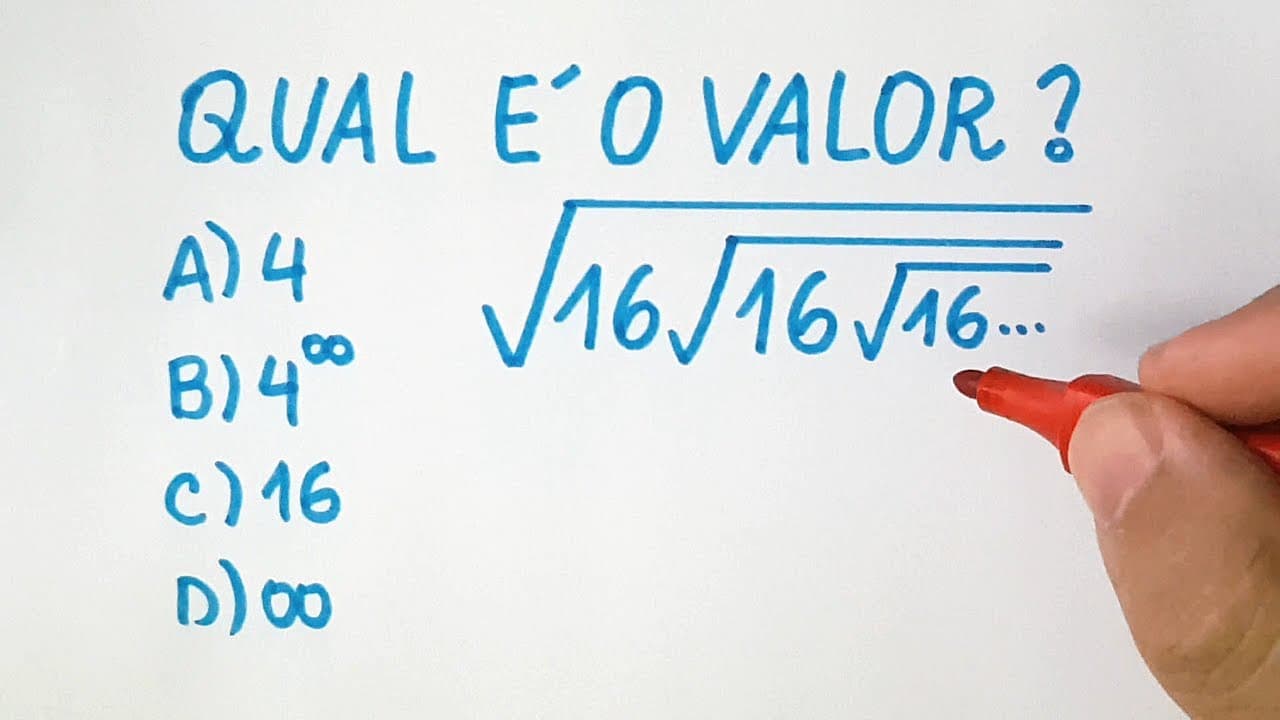 QUAL E´ O VALOR?
A) 4
B) 4^∞
C) 16
D) ∞
√16√16√16...